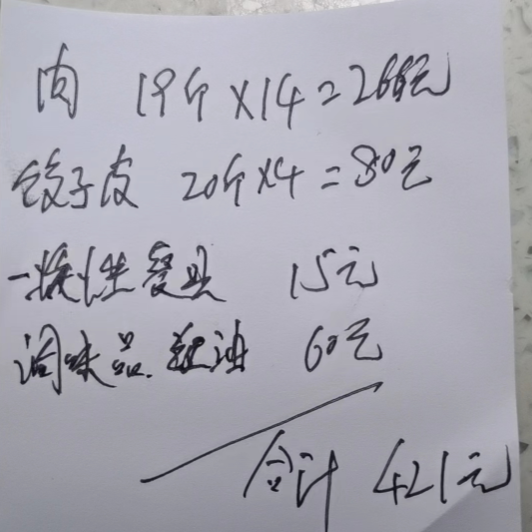 肉 19斤×14=266元
饺子皮 20斤×4=80元
一次性餐具 15元
调味品. 油 60元
合计 421元